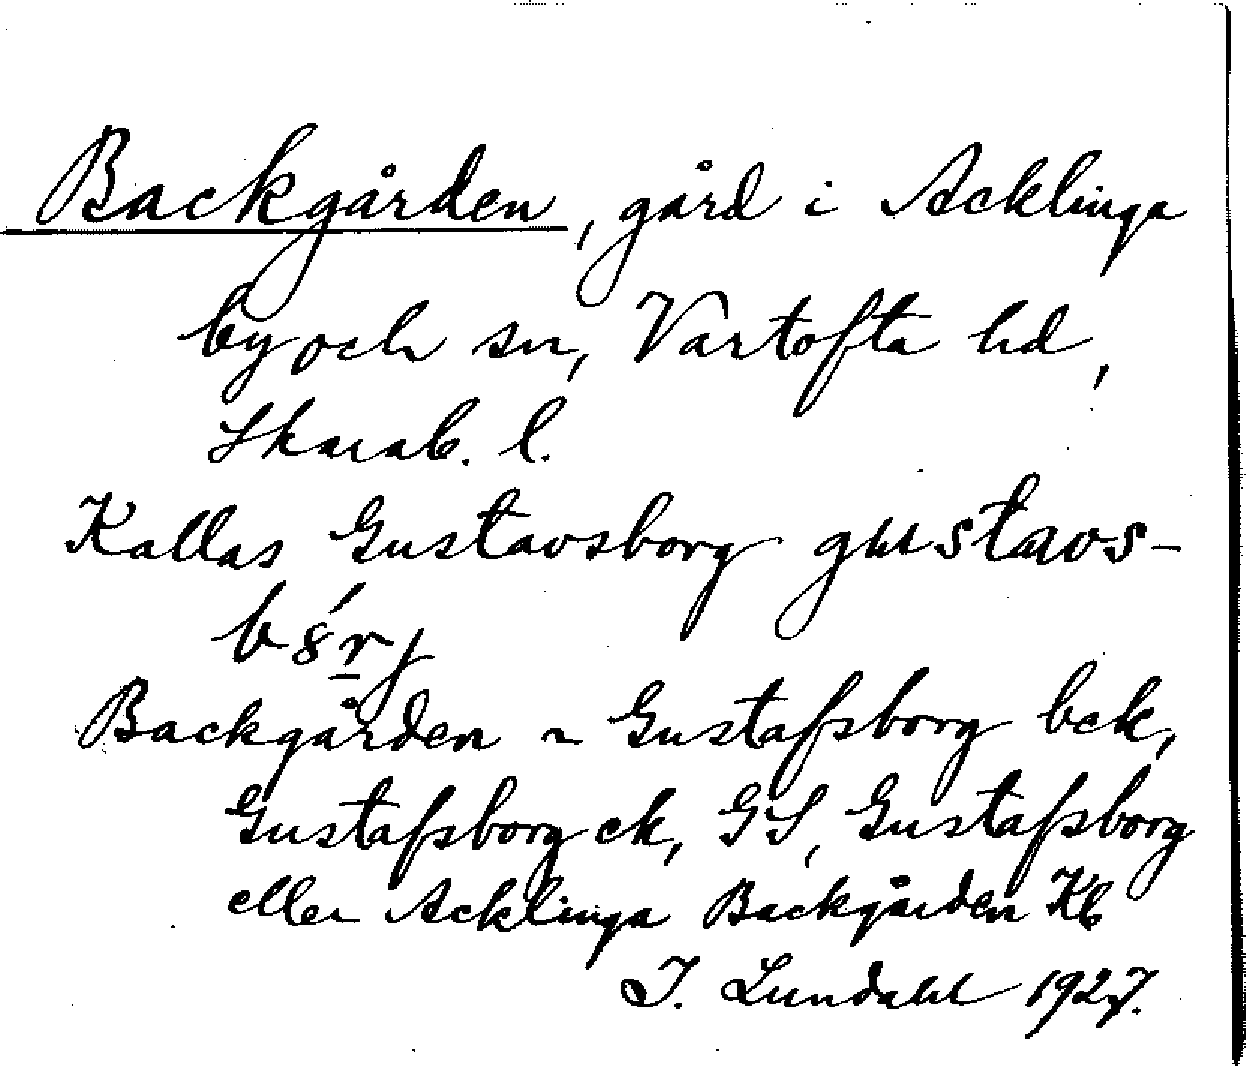 Backgården, gård i Acklinga
by och sn, Vartofta hd,
Skarab. l.
Kallas Gustavsborg gustavs-
bórj
Backgården ~ Gustafsborg bck,
Gustafsborg ek, GS, Gustafsborg
eller Acklinga Backgården Kb
I. Lundahl 1927.